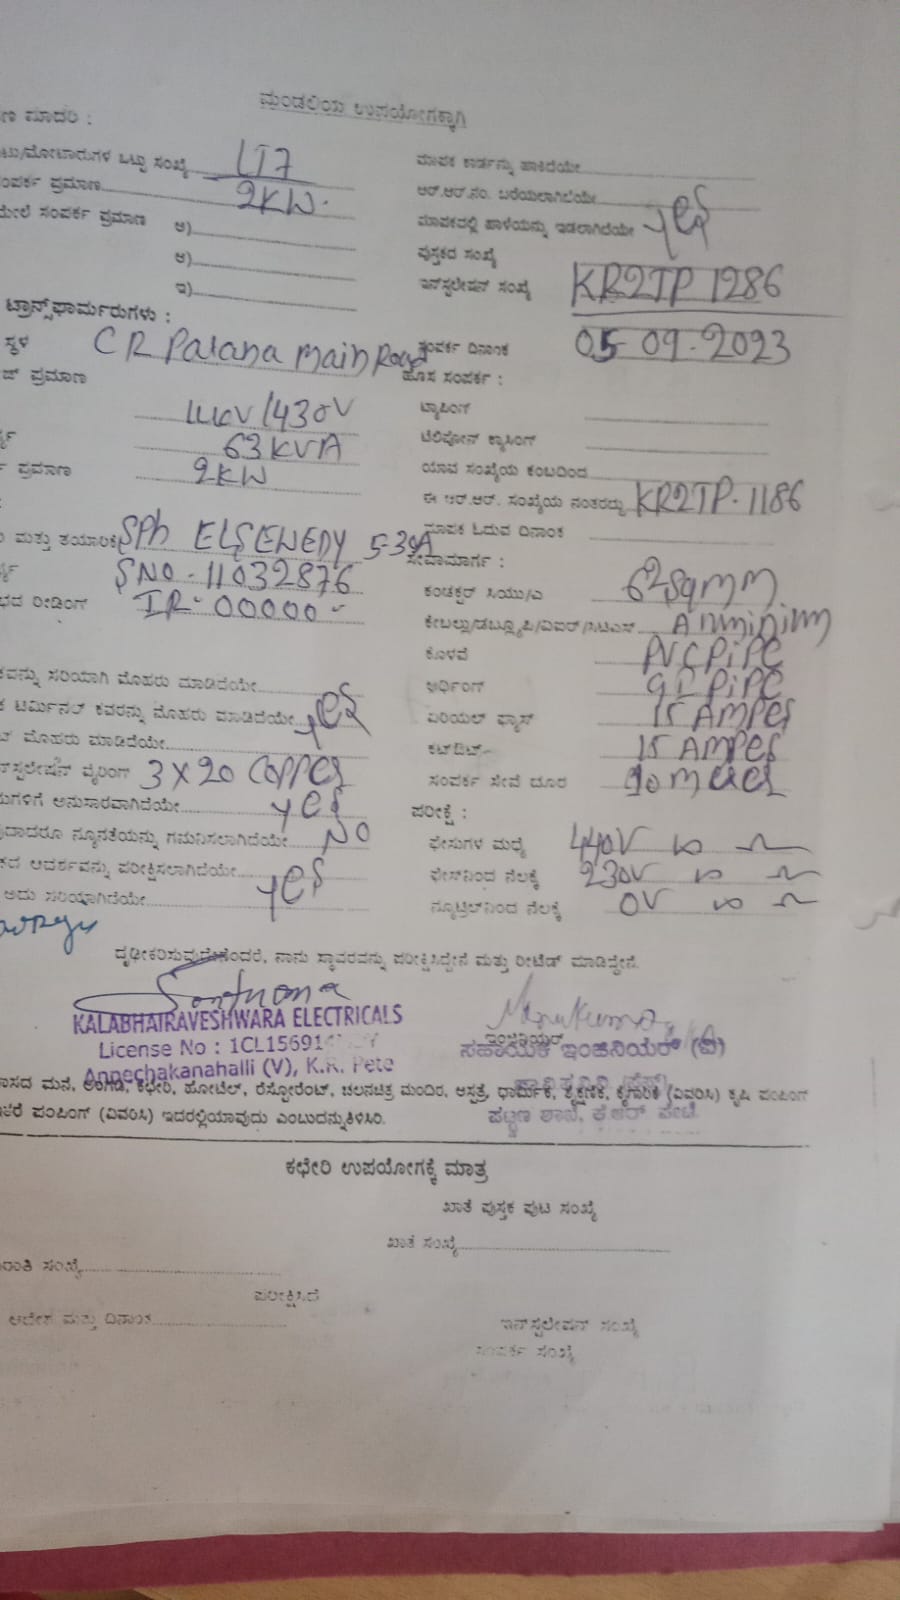 ಮಂಡಲಿಯ ಉಪಯೋಗಕ್ಕಾಗಿ
ಣ ಮಾದರಿ :
ಟು/ಮೋಟಾರುಗಳ ಒಟ್ಟು ಸಂಖ್ಯೆ LT7
ಸಂಪರ್ಕ ಪ್ರಮಾಣ 2KW.
ಮೇಲೆ ಸಂಪರ್ಕ ಪ್ರಮಾಣ ಅ)
ಆ)
ಇ)
ಟ್ರಾನ್ಸ್‌ಫಾರ್ಮರುಗಳು :
ಸ್ಥಳ CR Patana main Road
ಜ್ ಪ್ರಮಾಣ
11KV/430V
63KVA
ಪ್ರಮಾಣ 2KW
ಮತ್ತು ತಯಾರಿಕೆ SPh ELSEWEDY 5-30A
SNO-11032876
ಭದ ರೀಡಿಂಗ್ IR-00000-
ಕವನ್ನು ಸರಿಯಾಗಿ ಮೊಹರು ಮಾಡಿದೆಯೇ
ಕ ಟರ್ಮಿನಲ್ ಕವರನ್ನು ಮೊಹರು ಮಾಡಿದೆಯೇ yes
ಟ್ ಮೊಹರು ಮಾಡಿದೆಯೇ
ನ್‌ಸ್ಟಲೇಷನ್ ವೈರಿಂಗ್ 3 X 20 Copper
ಮಗಳಿಗೆ ಅನುಸಾರವಾಗಿದೆಯೇ yes
ವುದಾದರೂ ನ್ಯೂನತೆಯನ್ನು ಗಮನಿಸಲಾಗಿದೆಯೇ NO
ಕದ ಆದರ್ಶವನ್ನು ಪರೀಕ್ಷಿಸಲಾಗಿದೆಯೇ
ಅದು ಸರಿಯಾಗಿದೆಯೇ yes
ಮಾಪಕ ಕಾರ್ಡನ್ನು ಹಾಕಿದೆಯೇ
ಆರ್.ಆರ್.ನಂ. ಬರೆಯಲಾಗಿದೆಯೇ
ಮಾಪಕದಲ್ಲಿ ಹಾಳೆಯನ್ನು ಇಡಲಾಗಿದೆಯೇ yes
ಪುಸ್ತಕದ ಸಂಖ್ಯೆ
ಇನ್‌ಸ್ಟಲೇಷನ್ ಸಂಖ್ಯೆ KR2TP 1286
ಸಂಪರ್ಕ ದಿನಾಂಕ 05-09-2023
ಹೊಸ ಸಂಪರ್ಕ :
ಟ್ಯಾಪಿಂಗ್
ಟೆಲಿಫೋನ್ ಕ್ರಾಸಿಂಗ್
ಯಾವ ಸಂಖ್ಯೆಯ ಕಂಬದಿಂದ
ಈ ಆರ್.ಆರ್. ಸಂಖ್ಯೆಯ ನಂತರದ್ದು KR2TP.1186
ಮಾಪಕ ಓದುವ ದಿನಾಂಕ
ಸೇವಾಮಾರ್ಗ :
ಕಂಡಕ್ಟರ್ ಸಿಯು/ಎ 62sqmm
ಕೇಬಲ್ಲು/ಡಬ್ಲ್ಯೂಪಿ/ವಿಐಆರ್/ಸಿಟಿಎಸ್ Aluminium
ಕೊಳವೆ PVC PiPE
ಅರ್ಥಿಂಗ್ GI PiPE
ಏರಿಯಲ್ ಫ್ಯೂಸ್ 15 AMPes
ಕಟ್‌ಔಟ್ 15 AMPes
ಸಂಪರ್ಕ ಸೇವೆ ದೂರ 10 meter
ಪರೀಕ್ಷೆ :
ಫೇಸುಗಳ ಮಧ್ಯೆ 440V ∞ Ω
ಫೇಸ್‌ನಿಂದ ನೆಲಕ್ಕೆ 230V ∞ Ω
ನ್ಯೂಟ್ರಲ್‌ನಿಂದ ನೆಲಕ್ಕೆ 0V ∞ Ω
ದೃಢೀಕರಿಸುವುದೇನೆಂದರೆ, ನಾನು ಸ್ಥಾವರವನ್ನು ಪರೀಕ್ಷಿಸಿದ್ದೇನೆ ಮತ್ತು ರೀಟೆಡ್ ಮಾಡಿದ್ದೇನೆ.
KALABHAIRAVESHWARA ELECTRICALS
License No : 1CL15691
Annechakanahalli (V), K.R. Pete
ಇಂಜಿನಿಯರ್
ಸಹಾಯಕ ಇಂಜಿನಿಯರ್ (ವಿ)
ಪಟ್ಟಣ ಶಾಖೆ, ಕೆ.ಆರ್ ಪೇಟೆ
ಾಸದ ಮನೆ, ಅಂಗಡಿ, ಕಛೇರಿ, ಹೋಟೆಲ್, ರೆಸ್ಟೋರೆಂಟ್, ಚಲನಚಿತ್ರ ಮಂದಿರ, ಆಸ್ಪತ್ರೆ, ಧಾರ್ಮಿಕ, ಶೈಕ್ಷಣಿಕ, ಕೈಗಾರಿಕೆ (ವಿವರಿಸಿ) ಕೃಷಿ ಪಂಪಿಂಗ್
ತರೆ ಪಂಪಿಂಗ್ (ವಿವರಿಸಿ) ಇದರಲ್ಲಿಯಾವುದು ಎಂಬುದನ್ನುತಿಳಿಸಿರಿ.
ಕಛೇರಿ ಉಪಯೋಗಕ್ಕೆ ಮಾತ್ರ
ಖಾತೆ ಪುಸ್ತಕ ಪುಟ ಸಂಖ್ಯೆ
ಖಾತೆ ಸಂಖ್ಯೆ
ರಾತಿ ಸಂಖ್ಯೆ
ಪರೀಕ್ಷಿಸಿದೆ
ಆದೇಶ ಮತ್ತು ದಿನಾಂಕ
ಇನ್‌ಸ್ಟಲೇಷನ್ ಸಂಖ್ಯೆ
ಸಂಪರ್ಕ ಸಂಖ್ಯೆ